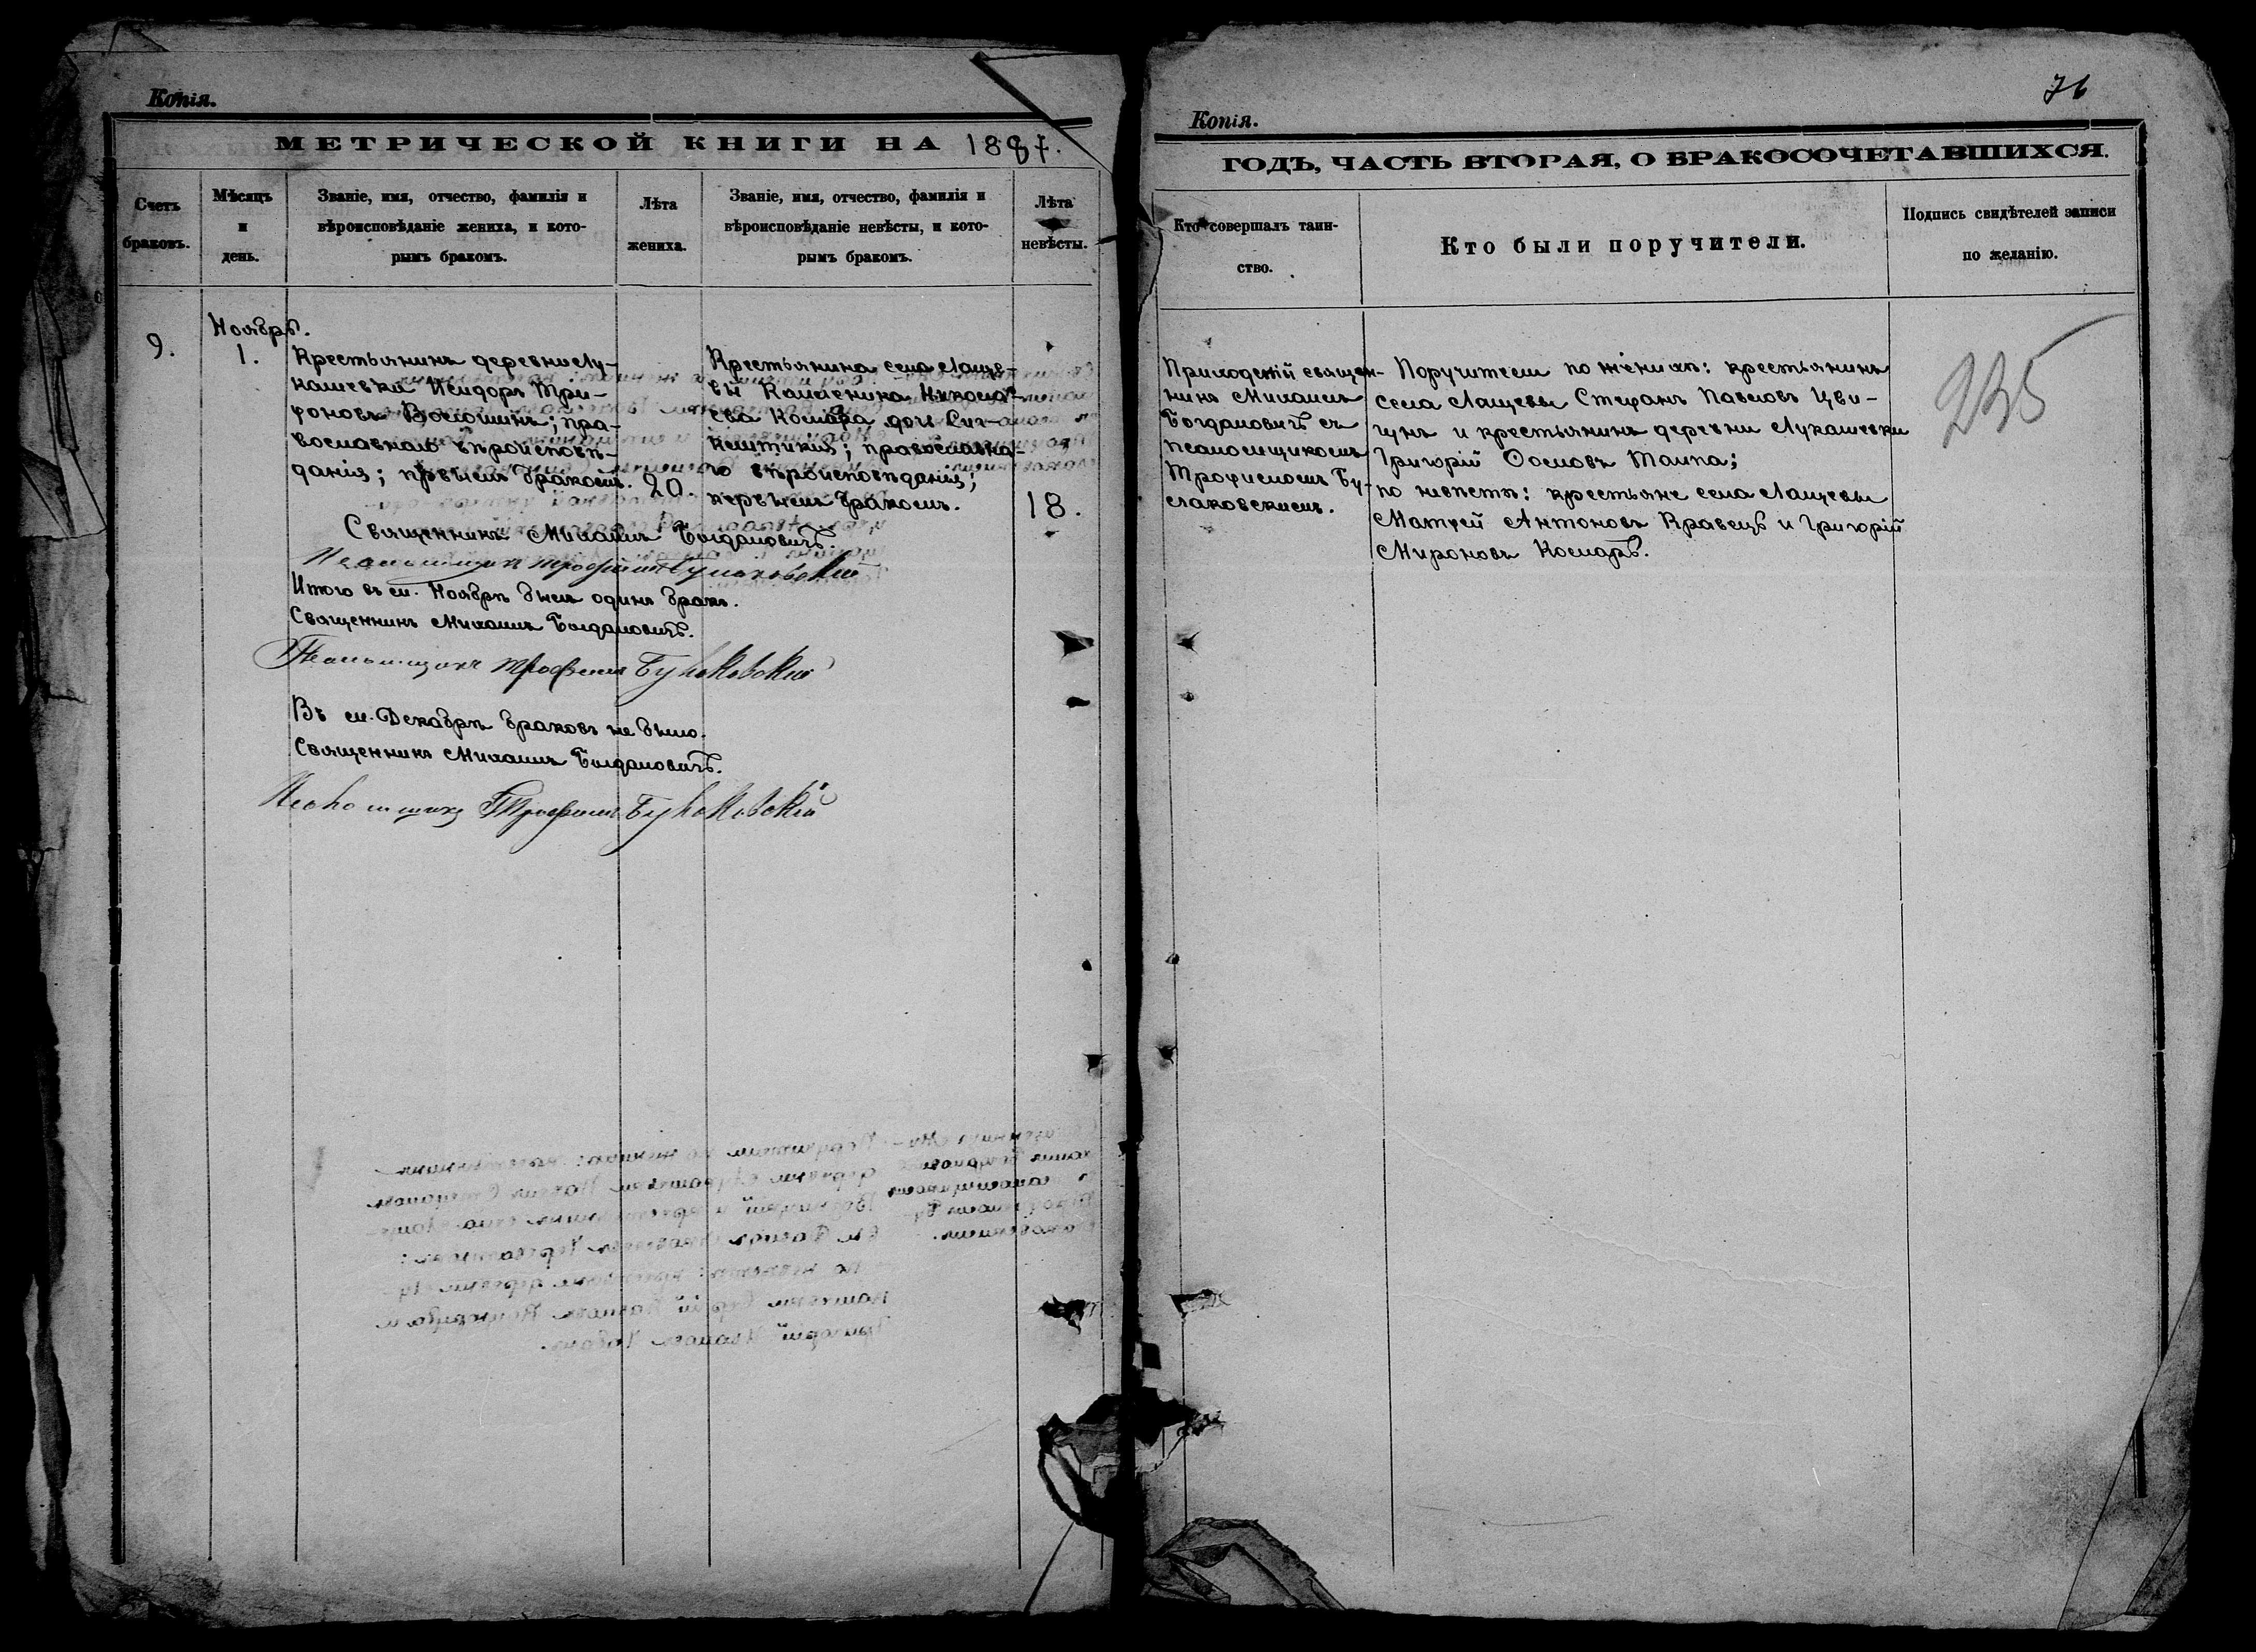 Копія.
МЕТРИЧЕСКОЙ КНИГИ НА 1887.
Счетъ браковъ.
Мѣсяцъ и день.
Званіе, имя, отчество, фамилія и
вѣроисповѣданіе жениха, и кото-
рымъ бракомъ.
Лѣта жениха.
Званіе, имя, отчество, фамилія и
вѣроисповѣданіе невѣсты, и кото-
рымъ бракомъ.
Лѣта невѣсты.
9.
Ноябрь.
1.
Крестьянинъ деревни Лу-
кашевки Исидоръ Три-
фоновъ Волошинъ; пра-
вославнаго вѣроисповѣ-
данія; првымъ бракомъ.
20.
Крестьянина села Лаще-
вы Николаева Комара дочь
православна-
го вѣроисповѣданія;
первымъ бракомъ.
18.
Священникъ Михаилъ Богдановичъ.
Псаломщикъ Трофимъ Булаковскій
Итого въ м. Ноябрѣ былъ одинъ бракъ.
Священникъ Михаилъ Богдановичъ.
Псаломщикъ Трофимъ Булаковскій
Въ м. Декабрѣ браковъ не было.
Священникъ Михаилъ Богдановичъ.
Псаломщикъ Трофимъ Булаковскій
76
Копія.
ГОДЪ, ЧАСТЬ ВТОРАЯ, О БРАКОСОЧЕТАВШИХСЯ.
Кто совершалъ таин-
ство.
Кто были поручители.
Подпись свидѣтелей записи
по желанію.
Приходскій священ-
никъ Михаилъ
Богдановичъ съ
псаломщикомъ
Трофимомъ Бу-
лаковскимъ.
Поручители по женихѣ: крестьянинъ
села Лащевы Стефанъ Павловъ Цви-
гунъ и крестьянинъ деревни Лукашевки
Григорій Осиповъ
по невѣстѣ: крестьяне села Лащевы
Матѳей Антоновъ Кравецъ и Григорій
Мироновъ Комаръ.
235